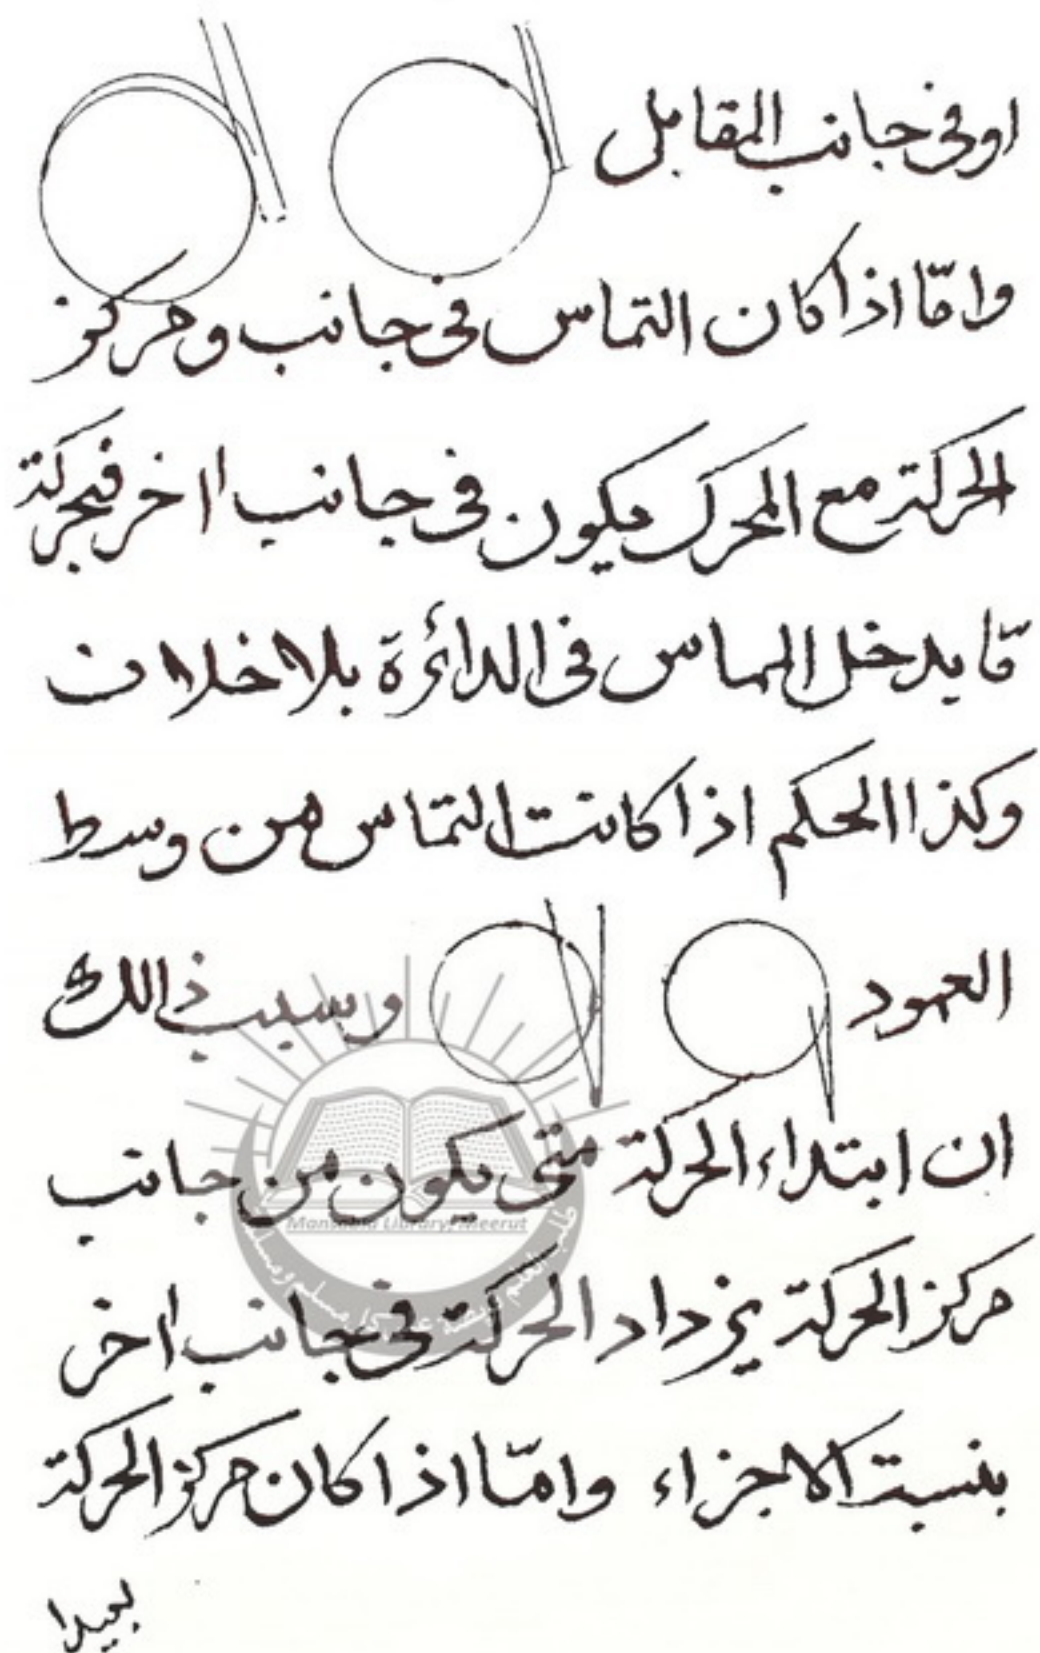 اوفى جانب المقابل
وامّا اذا كان التماس فى جانب ومركز
الحركة مع المحرك يكون فى جانب اخر فبحركة
مّا يدخل المماس فى الدائرة بلا خلاف
وكذا الحكم اذا كانت التماس من وسط
العمود وسبب ذالك
ان ابتداء الحركة متى يكون من جانب
مركز الحركة يزداد الحركة فى جانب اخر
بنسبة الاجزاء وامّا اذا كان مركز الحركة
بعيدا
Mansabia Library, Meerut